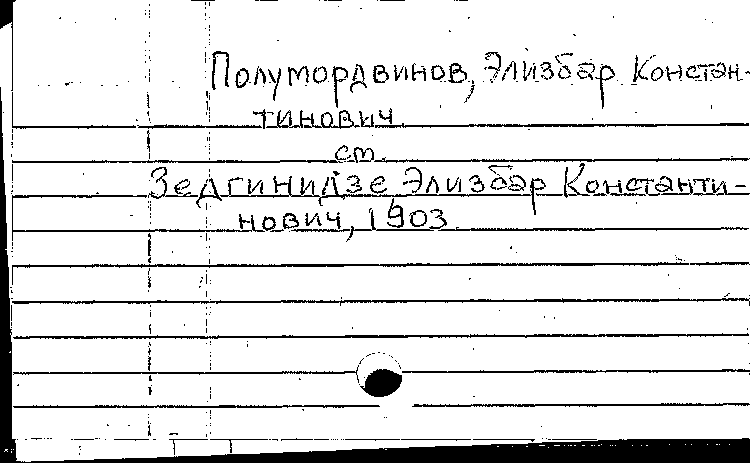 Полумордвинов, Элизбар Констан-
тинович
см.
Зедгинидзе, Элизбар Константи-
нович, 1903